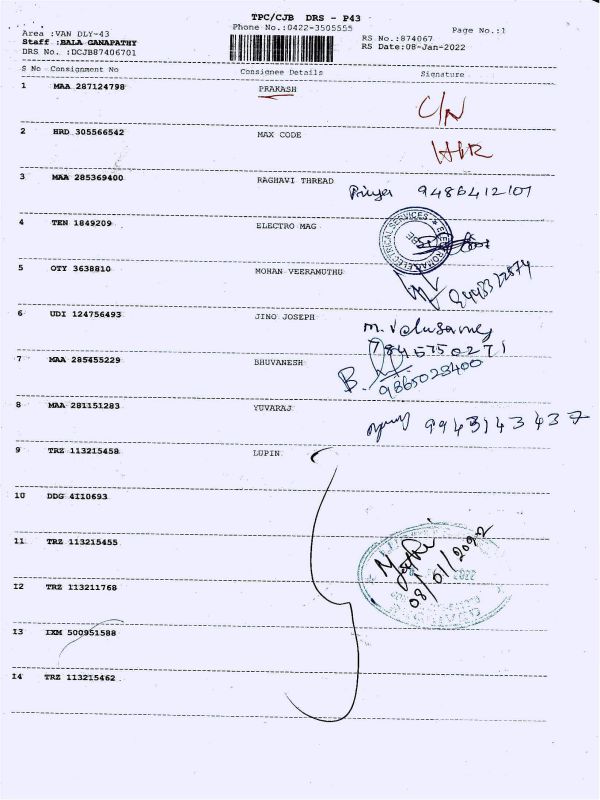 TPC/CJB DRS - P43
Phone No.:0422-3505555
Page No.:1
Area :VAN DLY-43
RS No.:874067
Staff :BALA GANAPATHY
RS Date:08-Jan-2022
DRS No. :DCJB87406701
S No Consignment No Consignee Details Signature
1 MAA 287124798 PRAKASH C/N
2 HRD 305566542 MAX CODE
3 MAA 285369400 RAGHAVI THREAD 9486412101
4 TEN 1849209 ELECTRO MAG
5 OTY 3638810 MOHAN VEERAMUTHU
6 UDI 124756493 JINO JOSEPH M. Velusamy
7845750271
7 MAA 285455229 BHUVANESH B.
9865028400
8 MAA 281151283 YUVARAJ 9943143437
9 TRZ 113215458 LUPIN
10 DDG 4110693
11 TRZ 113215455
08/01/2022
12 TRZ 113211768
13 IXM 500951588
14 TRZ 113215462